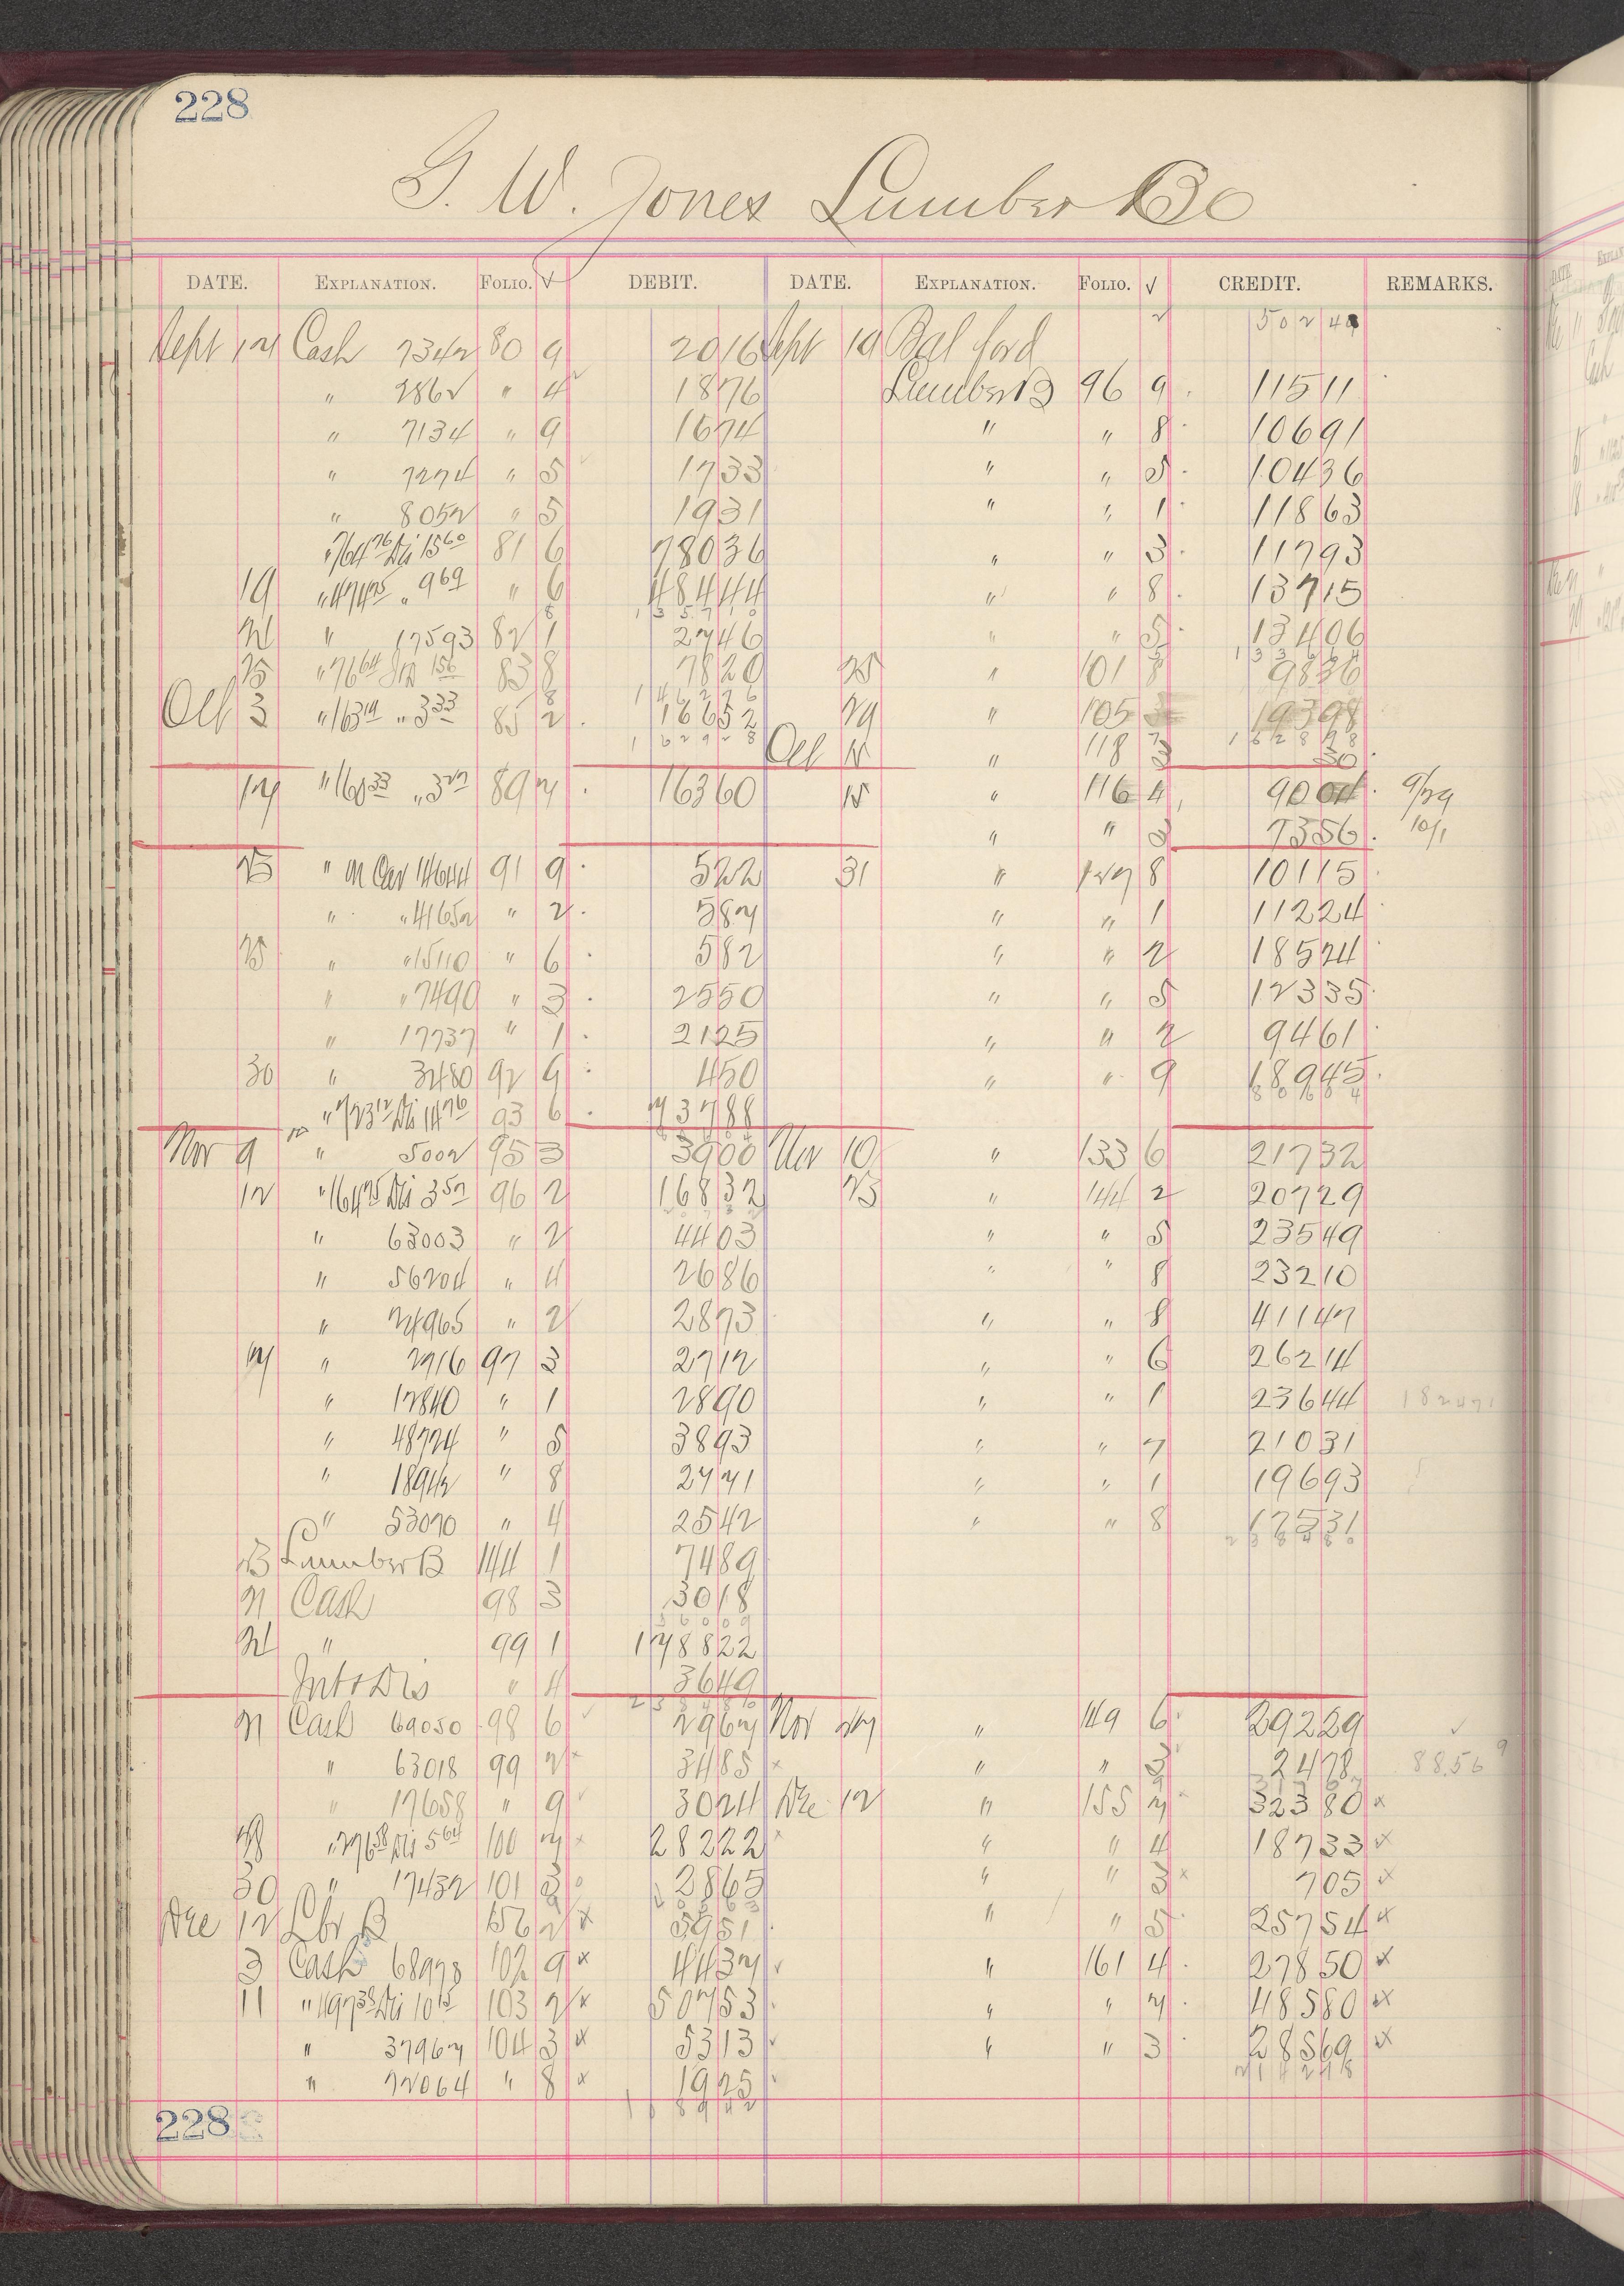 228
G. W. Jones Lumber Co
DATE. EXPLANATION. FOLIO. √ DEBIT. DATE. EXPLANATION. FOLIO. √ CREDIT. REMARKS.
50240
Sept 17 Cash 7342 80 9 2016 Sept 19 Bal ford
" 2862 " 4 1876 Lumber B 96 9 11511
" 7134 " 9 1674 " " 8 10691
" 7274 " 5 1733 " " 5 10436
" 8052 " 5 1931 " " 1 11863
" 764 76 Dis 15 60 81 6 78036 " " 3 11793
19 " 474 75 " 9 69 " 6 48444 " " 8 13715
135710
21 " 17593 82 1 2746 " " 5 13406
25 " 76 64 Dis 1 56 83 8 7820 25 " 101 8 9836
146276
Oct 3 " 163 19 " 3 33 85 2 16652 29 " 105 19398
162928 162878
Oct 15 " 118 3 50
17 " 160 33 " 3 27 89 7 16360 15 " 116 4 9004 9/29
" " 3 7356 10/1
23 " on Car 14644 91 9 522 31 " 127 8 10115
" " 41652 " 2 587 " " 1 11224
25 " " 15110 " 6 582 " " 2 18524
" " 7490 " 3 2550 " " 5 12335
" 17737 " 1 2125 " " 2 9461
30 " 3480 92 9 450 " " 9 18945
80604
" 723 12 Dis 14 76 93 6 73788
Nov 9 " 5002 95 3 3900 Nov 10 " 133 6 21732
12 " 164 75 Dis 3 57 96 2 16832 23 " 144 2 20729
" 63003 " 2 4403 " " 5 23549
" 56204 " 4 2686 " " 8 23210
" 24965 " 2 2873 " " 8 41147
17 " 2716 97 3 2712 " " 6 26214
" 12840 " 1 2890 " " 1 23644
" 48724 " 5 3893 " " 7 21031
" 18942 " 8 2771 " " 1 19693
" 53070 " 4 2542 " " 8 17531
238480
23 Lumber B 144 1 7489
21 Cash 98 3 3018
56009
21 " 99 1 178822
Int & Dis " 4 3649
238480
21 Cash 69050 98 6 2967 Nov 27 " 149 6 29229
" 63018 99 2 × 3485 × " " 3 2478 8856
" 17658 " 9 3024 Dec 12 " 155 7 32380 ×
28 " 276 58 Dis 5 64 100 7 × 28222 × " " 4 18733 ×
30 " 17432 101 3 2865 " " 3 × 705 ×
Dec 12 Lbr B 156 2 × 5951 " " 5 25754 ×
3 Cash 68978 102 9 × 4437 " 161 4 27850 ×
11 " 497 38 Dis 10 15 103 2 × 50753 " " 7 48580 ×
" 37967 104 3 × 5313 " " 3 28569 ×
214278
" 72064 " 8 × 1925
228